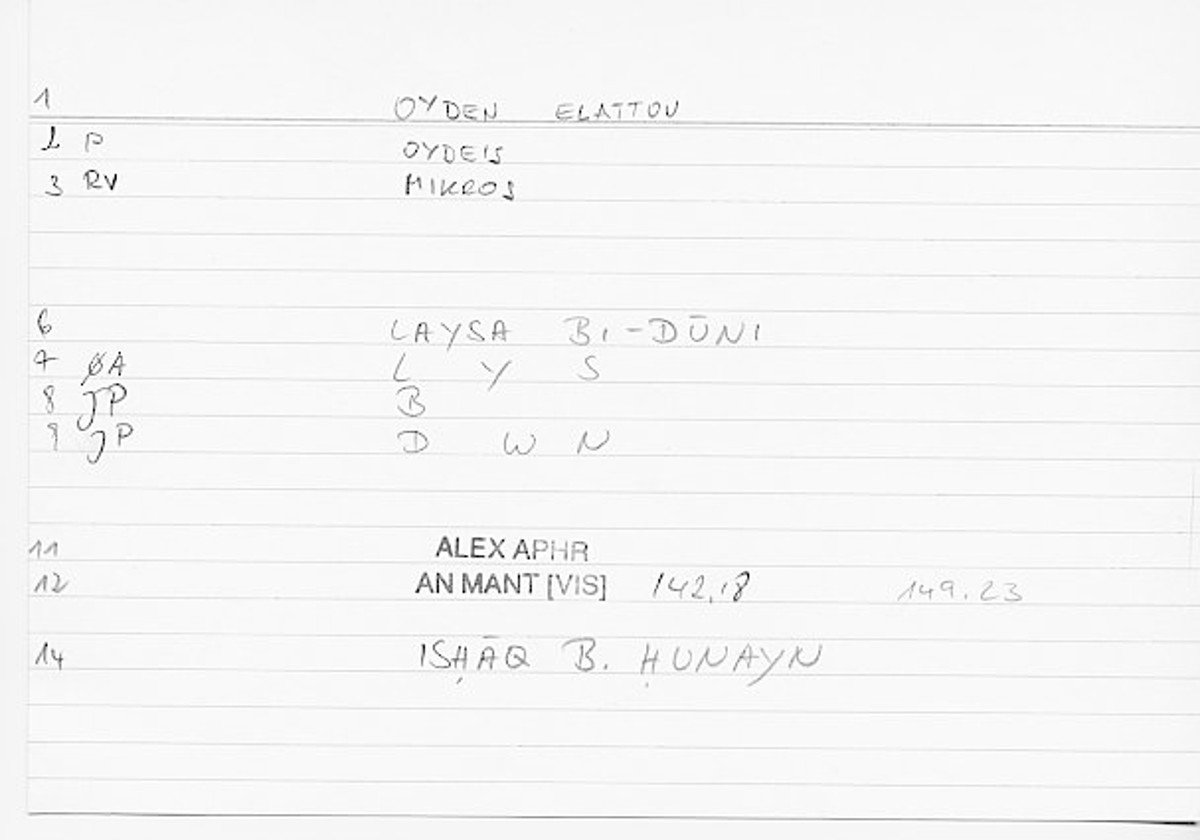 1 OYDEN ELATTOU
2 P OYDEIS
3 RV MIKROS
6 LAYSA BI-DŪNI
7 ØA L Y S
8 JP B
9 JP D W N
11 ALEX APHR
12 AN MANT [VIS] 142,18 149.23
14 ISḤĀQ B. ḤUNAYN